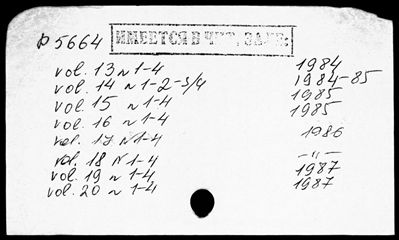 р 5664 ИМЕЕТСЯ В ЧИТ. ЗАЛЕ:
vol. 13 N 1-4 1984
vol. 14 N 1-2-3/4 1984-85
vol. 15 N 1-4 1985
vol. 16 N 1-4 1985
vol. 17 N 1-4 1986
vol. 18 N 1-4 -"-
vol. 19 N 1-4 1987
vol. 20 N 1-4 1987